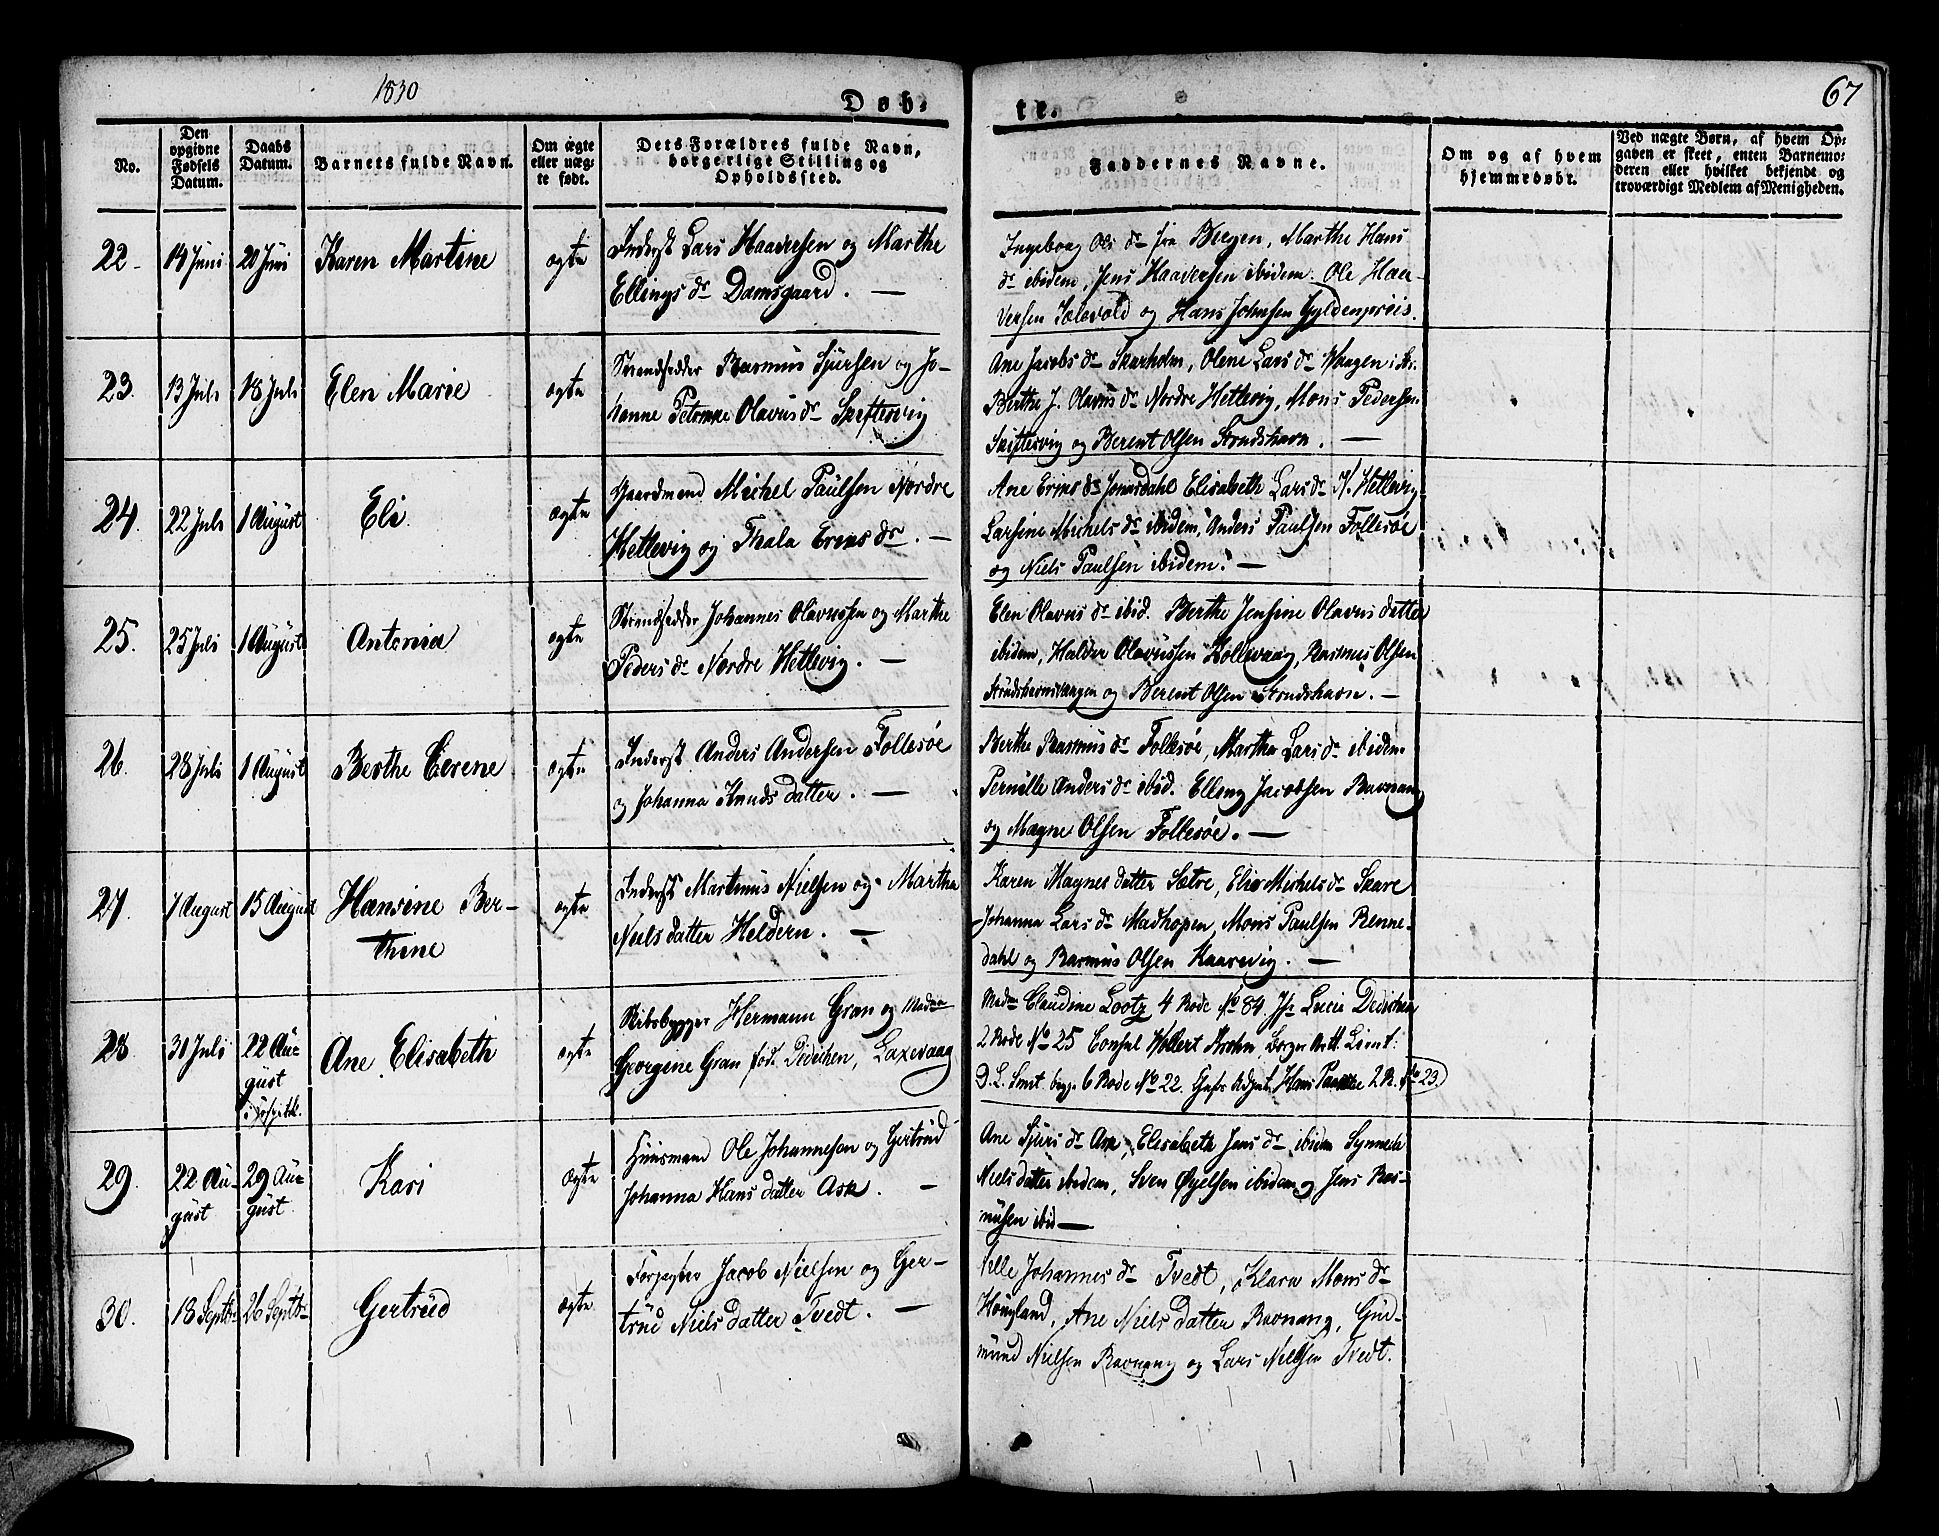 1830
Døb-
te.
67
No.
Den opgivne Fødsels Datum.
Daabs Datum.
Barnets fulde Navn.
Om ægte eller uæg- te født.
Dets Forældres fulde Navn, borgerlige Stilling og Opholdssted.
Faddernes Navne.
Om og af hvem hjemmedøbt.
Ved uægte Børn, af hvem Op- gaven er skeet, enten Barnemo- deren eller hvilket bekjendt og troværdigt Medlem af Menigheden.
22
14 Juni
20 Juni
Karen Martine
ægte
Inderst Lars Haaversen og Marthe
Ellings dr Damsgaard. —
Ingeborg Ols dr fra Bergen, Marthe Hans
dr ibidem, Jens Haaversen ibidem. Ole Haa-
versen og Hans Johnsen Gyldenpriis.
23.
13 Juli
18 Juli
Elen Marie
ægte
Strandsidder Rasmus Sjursen og Jo-
hanne Petrine Olavus dr Skiftesvig
Ane Jacobs dr Skarholm, Olene Lars dr Vaagen
Berthe J. Olavus dr Nordre Hetlevig, Mons Pedersen
Skiftesvig og Berent Olsen Strudshavn. —
24.
22 Juli
1 August
Eli
ægte
Gaardmand Michel Paulsen Nordre
Hetlevig og Thala Erics dr. —
Ane Erics dr Janusdahl Elisabeth Lars dr N. Hetlevig
Larsine Michels dr ibidem, Anders Paulsen Follesøe
og Niels Paulsen ibidem. —
25.
25 Juli
1 August
Antonia
ægte
Strandsidder Johannes Olavussen og Marthe
Peders dr Nordre Hetlevig. —
Elen Olavus dr ibid. Berthe Jensine Olavus datter
ibidem, Haldor Olavussen Kollevaag, Rasmus Olsen
Strudshavnsvaagen og Berent Olsen Strudshavn. —
26.
28 Juli
1 August
Berthe Cerene
ægte
Inderst Anders Andersen Follesøe
og Johanna Knuds datter. —
Berthe Rasmus dr Follesøe, Martha Lars dr ibidem
Pernille Anders dr ibid. Elling Jacobsen Ravnang
og Magne Olsen Follesøe. —
27.
7 August
15 August
Hansine Ber-
thine
ægte
Inderst Martinus Nielsen og Martha
Niels datter Heldern. —
Karen Magnes datter Sætre, Eli Michels dr Skare
Johanna Lars dr Madhopen, Mons Paulsen Renne-
dahl og Rasmus Olsen Kaarevig. —
28
30 Juli
22 Au-
gust
i Hospitk.
Ane Elisabeth
ægte
Skibsbygger Hermann Gran og Madme
Georgine Gran fød Didichen, Laxevaag
Madm Claudine Lootz 4 Rode No 84. Jfr Lucie Dedichen
2 Rode No 25 Consul Wollert Krohn, Borger Artl. Lieut:
D. L. Smit. 6 Rode No 22. Hans 2 R. No 23.
29.
22 Au-
gust
29 Au-
gust
Kari
ægte
Huusmand Ole Johannesen og Gertrud
Johanna Hans datter Ask. —
Ane Sjurs dr Ask, Elisabeth Jens dr ibidem Synneva
Niels datter ibidem, Sven Øyelsen ibidem og Jens Ras-
musen ibid —
30.
18 Septbr
26 Septbr
Gertrud
ægte
Forpagter Jacob Nielsen og Ger-
trud Niels datter Tvedt. —
Nille Johannes dr Tvedt, Klara Mons dr
Hougland, Ane Niels datter Ravnang, Gud-
mund Nielsen Ravnang og Lars Nielsen Tvedt.